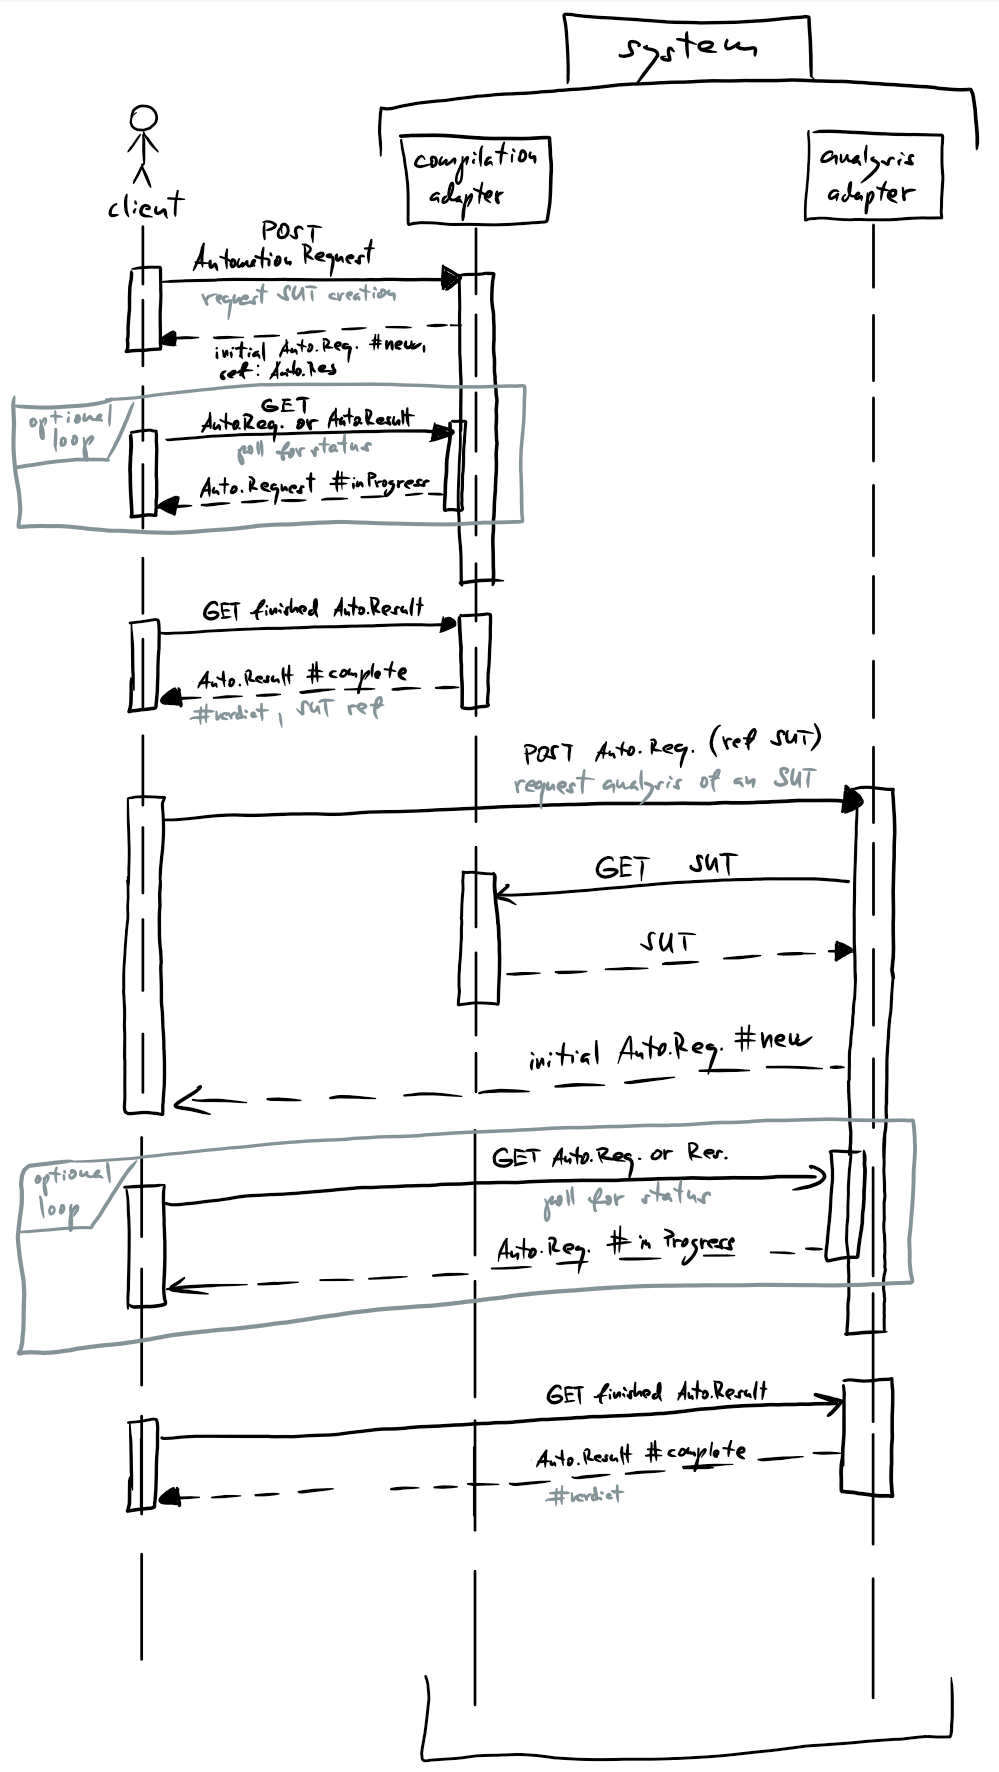 system
client
compilation
adapter
analysis
adapter
POST
Automation Request
request SUT creation
initial Auto.Req. #new,
ref: Auto.Res
optional
loop
GET
Auto.Req. or Auto.Result
poll for status
Auto.Request #inProgress
GET finished Auto.Result
Auto.Result #complete
#verdict, SUT ref
POST Auto.Req. (ref SUT)
request analysis of an SUT
GET SUT
SUT
initial Auto.Req. #new
optional
loop
GET Auto.Req. or Res.
poll for status
Auto.Req. #in Progress
GET finished Auto.Result
Auto.Result #complete
#verdict